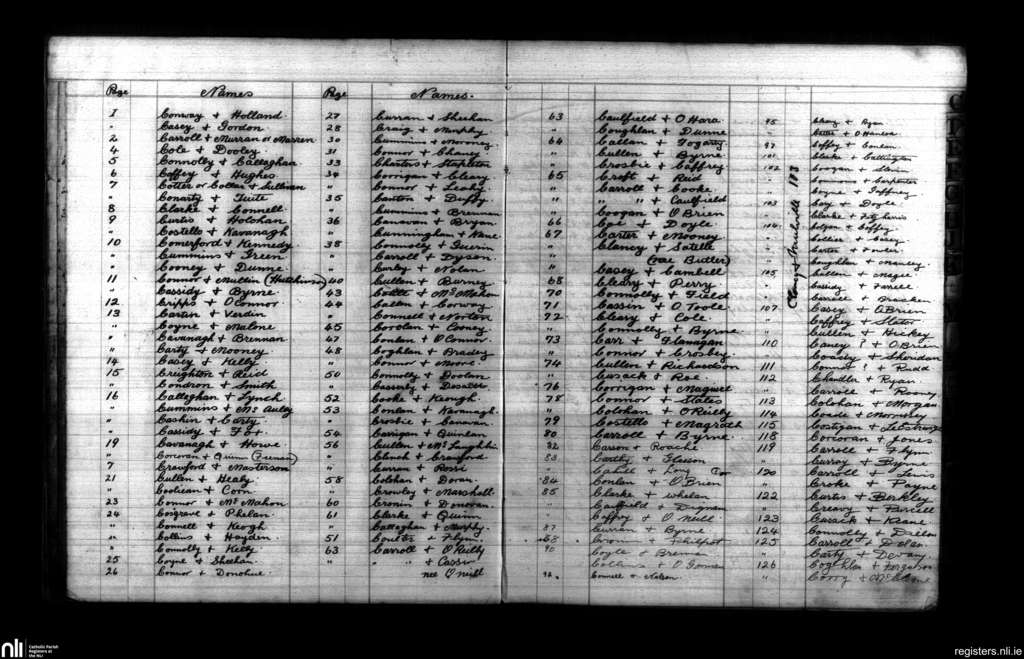 Page Names Page Names.
1 Conway + Holland
" Casey + Gordon
2 Carroll + Murran or Warren
4 Cole + Dooley
5 Connolly + Callaghan
6 Coffey + Hughes
7 Cotter or Collier + Sullivan
" Conarty + Tuite
8 Clarke + Connell
9 Curtis + Holohan
" Costello + Kavanagh
10 Comerford + Kennedy
" Cummins + Green
" Cooney + Dunne
11 Connor + Mullin (Hutchinson)
" Cassidy + Byrne
12 Cripps + O'Connor
13 Cartin + Verdin
" Coyne + Malone
" Cavanagh + Brennan
" Carty + Mooney
14 Casey + Kelly
15 Creighton + Reid
" Condron + Smith
16 Callaghan + Lynch
" Cummins + McAuley
" Caskin + Carty
" Cassidy + Fox
19 Cavanagh + Howe
" Corcoran + Quinn
7 Crauford + Masterson
21 Cullen + Healy
" Coolican + Conn
23 Connor + McMahon
24 Cosgrave + Phelan
" Connell + Keogh
" Collins + Hayden
" Connolly + Kelly
25 Coyne + Sheehan
26 Connor + Donohue
27 Curran + Sheehan
28 Craig + Murphy
30 Cummins + Mooney
31 Connor + Cheney
33 Charters + Stapleton
34 Corrigan + Cleary
" Connor + Leahy
35 Canton + Duffy
" Cummins + Brennan
36 Canavan + Bryan
" Cunningham + Kane
38 Connolly + Guerin
" Carroll + Dyson
" Curley + Nolan
40 Cullen + Burney
43 Coates + McMahon
44 Callan + Conroy
" Connell + Norton
45 Corolan + Cooney
47 Conlan + O'Connor
48 Coghlan + Bradey
" Connor + Moore
50 Connolly + Doolan
" Casserly +
52 Cooke + Keough
53 Conlan + Kavanagh
" Crosbie + Canavan
54 Carrigan + Quinlan
56 Cullen + McLaughlin
" Clinch + Crauford
" Curran + Rossi
58 Colohan + Doran
" Crowley + Marshall
60 Cronin + Donovan
61 Clarke + Quinn
" Callaghan + Murphy
51 Coulter + Flynn
63 Carroll + O'Reilly
" " + Cassin
nee O'Neill
63 Caulfield + O'Hara
" Coughlan + Dunne
64 Callan + Fogarty
" Cullen + Byrne
" Crosbie + Caffrey
65 Croft + Reid
" Carroll + Cooke
" " + Caulfield
" Coogan + O'Brien
66 Coe + Doyle
67 Carter + Mooney
" Clancy +
(nee Butler)
" Casey + Cambell
68 Cleary + Perry
70 Connolly + Field
71 Cassin + O'Toole
72 Cleary + Cole
" Connolly + Byrne
73 Carr + Flanagan
" Connor + Crosbey
74 Cullen + Richardson
" Cusack + Roe
76 Corrigan + Maxwell
78 Connor + States
" Colohan + O'Reilly
79 Costello + Magrath
80 Carroll + Byrne
82 Carson + Roache
83 Carthy + Gleeson
" Cahill + Long
84 Conlan + O'Brien
85 Clarke + Whelan
" Caulfield + Dignan
" Caffrey + O'Neill
87 Curran + Byrne
Philpot
90 Coyle + Brennan
Collins + O'Gorman
92 Connell + Nolan
95 Cleary + Ryan
97 Coffey + Conlan
101 Clarke +
102 Coogan +
" + Carpenter
" Coyne + Gaffney
103 Coey + Doyle
" Clarke + Fitzharris
104 + Coffey
" Collier + Casey
" Carter +
" Coughlan +
105 Cullen + Magee
" Cassidy + Farrell
" Carroll + Bracken
107 Casey + O'Brien
" Caffrey + Slator
" Cullen + Hickey
110 Caney ? + O'Brien
" + Sheridan
111 Connor ? + Rudd
112 Chandler + Ryan
" Carroll + Rooney
113 Colohan + Morgan
114 Coade +
115 Costigan + Lestrange
118 Corcoran + Jones
119 Carroll + Flynn
" Curray + Flynne
120 Carroll + Lewis
" Croke + Payne
122 Curtis + Berkley
" Creavy + Purcell
123 Cusack + Keane
124 Connolly + Dillon
125 Carroll + Dolan
" Carty + Devany
126 Coghlan + Ferguson
" Corry +
nli
Catholic Parish
Registers at
the NLI
registers.nli.ie